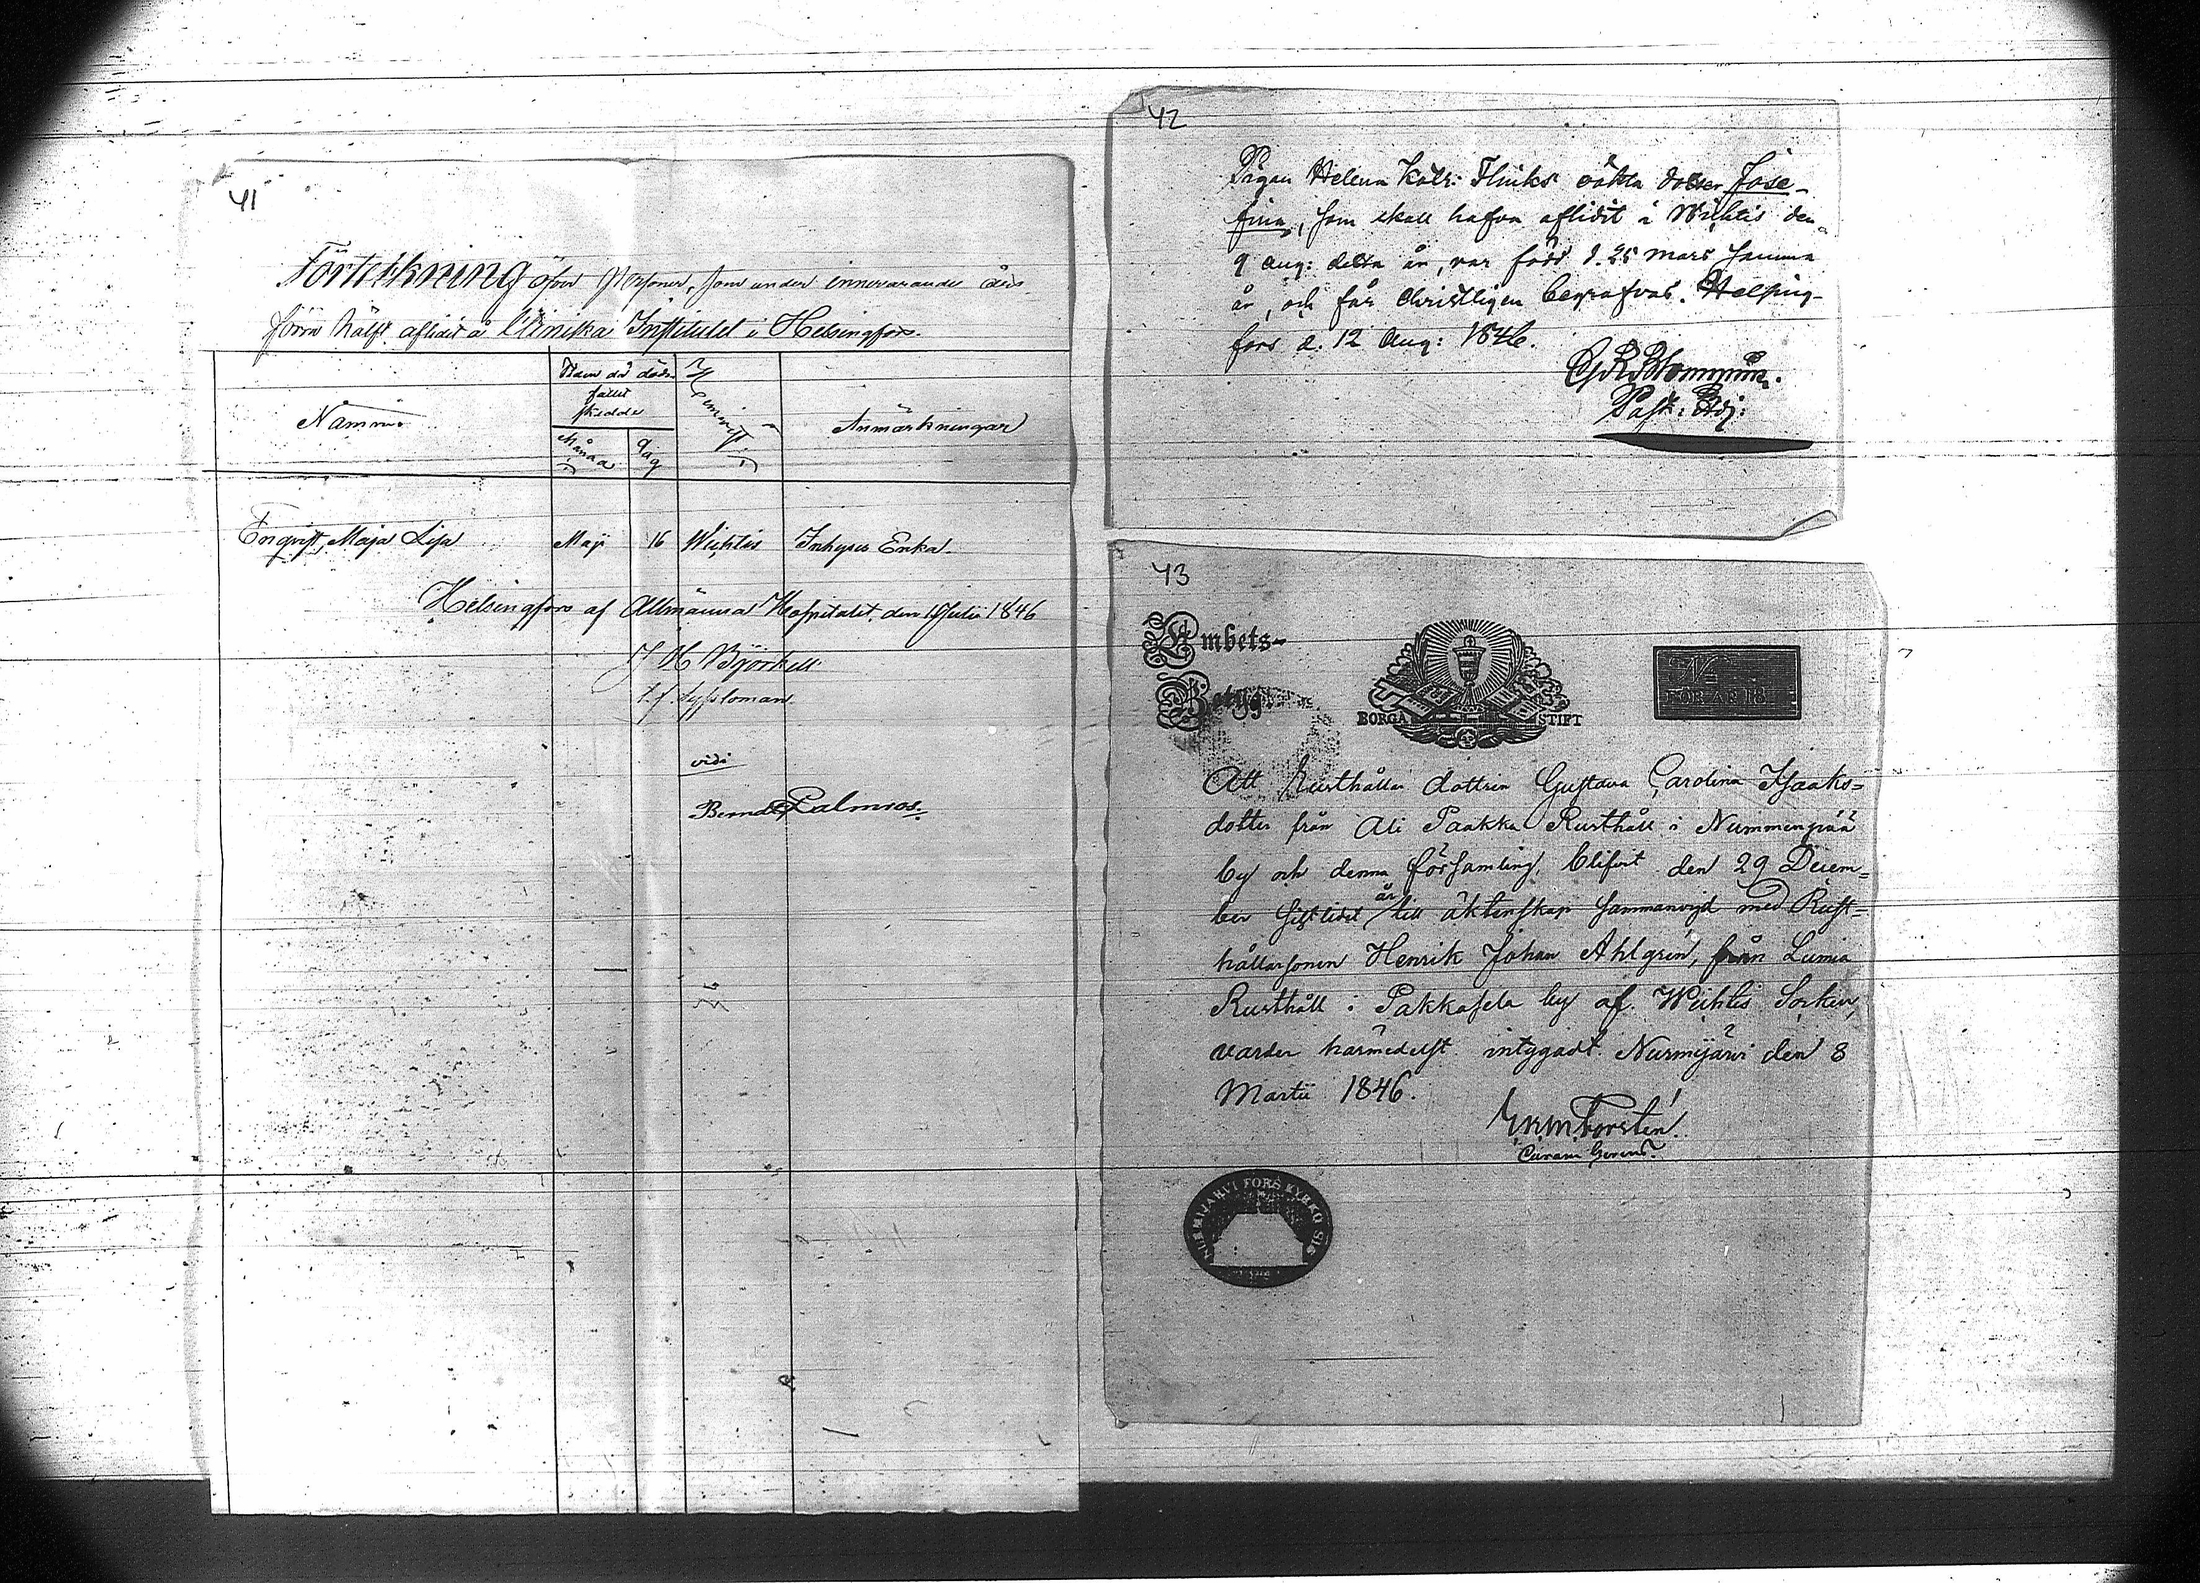 41
Förtekning öfver Personer, som under innevarande års
förra hälft aflidit å Cliniska Institutet i Helsingfors.
Namn
Tiden då döds-
fallet
skedde
Månad
dag
Hemvist
Anmärkningar
Enqvist, Maja Lisa Maji 16 Wichtis Inhyses Enka
Helsingfors af Allmänna Hospitalet, den 1 Julii 1846
J H Björkell
t.f. sysloman
vidi
Bernd Palmros.
42
Pigan Helena Kats: Flinks oäkta dotter Jose-
fina, som skall hafva aflidit i Wichtis den
9 Aug: detta år, var född d. 25 Mars samma
år, och får Christligen begrafvas. Helsing-
fors d. 12 Aug: 1846.
Past: Adj:
43
Embets-
Betyg
BORGÅ STIFT
N
FÖR ÅR 18
Att Rusthållar dottren Gustava Carolina Isaaks-
dotter från Ali Paakka Rusthåll i Nummenpää
by och denna församling, blifvit den 29 Decem-
ber sistlidet år till äktenskap sammanvigd med Rust-
hållarsonen Henrik Johan Ahlgrén, från Lumia
Rusthåll i Pakkasela by af Wichtis Socken,
varder härmedelst intygadt. Nurmijärvi den 8
Martii 1846.
Forstén.
Curam Gerens.
NURMIJÄRVI FÖRS KYRKO SIG